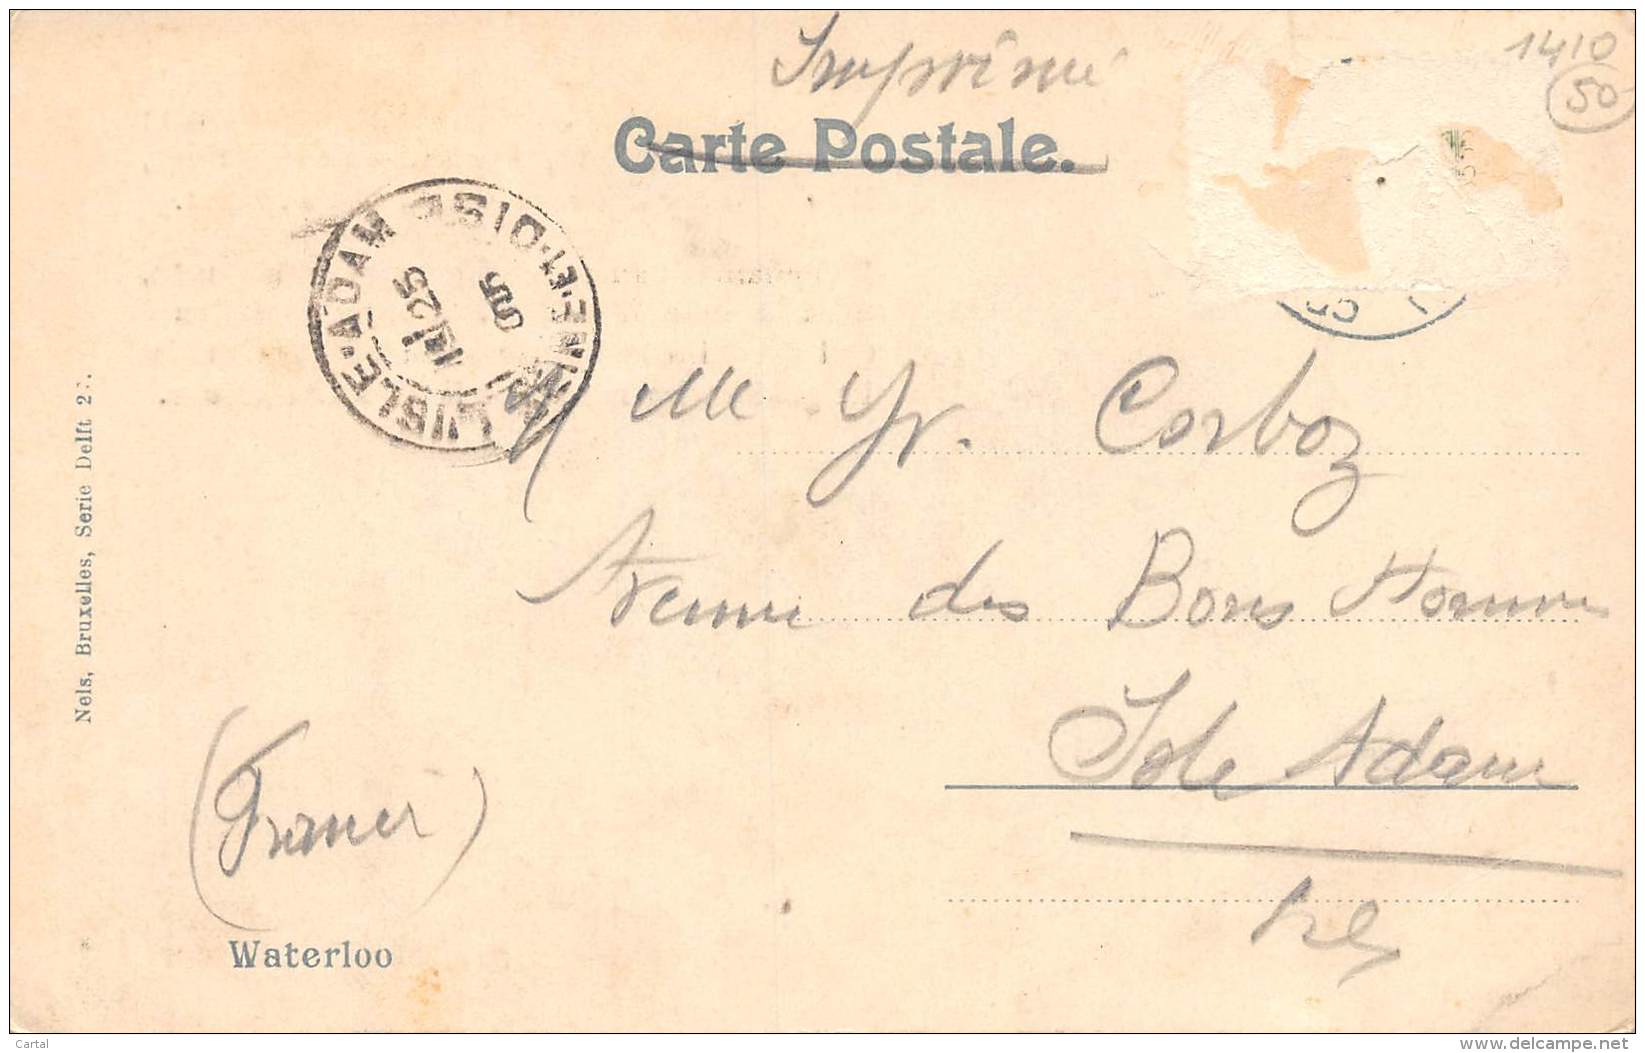 1410
50
Imprimé
Carte Postale.
L'ISLE-ADAM SEINE-ET-OISE
25
05
Mlle Yv. Corboz
Avenue des Bons Hommes
Isle Adam
(France)
Waterloo
Nels, Bruxelles, Serie Delft
Cartal
www.delcampe.net